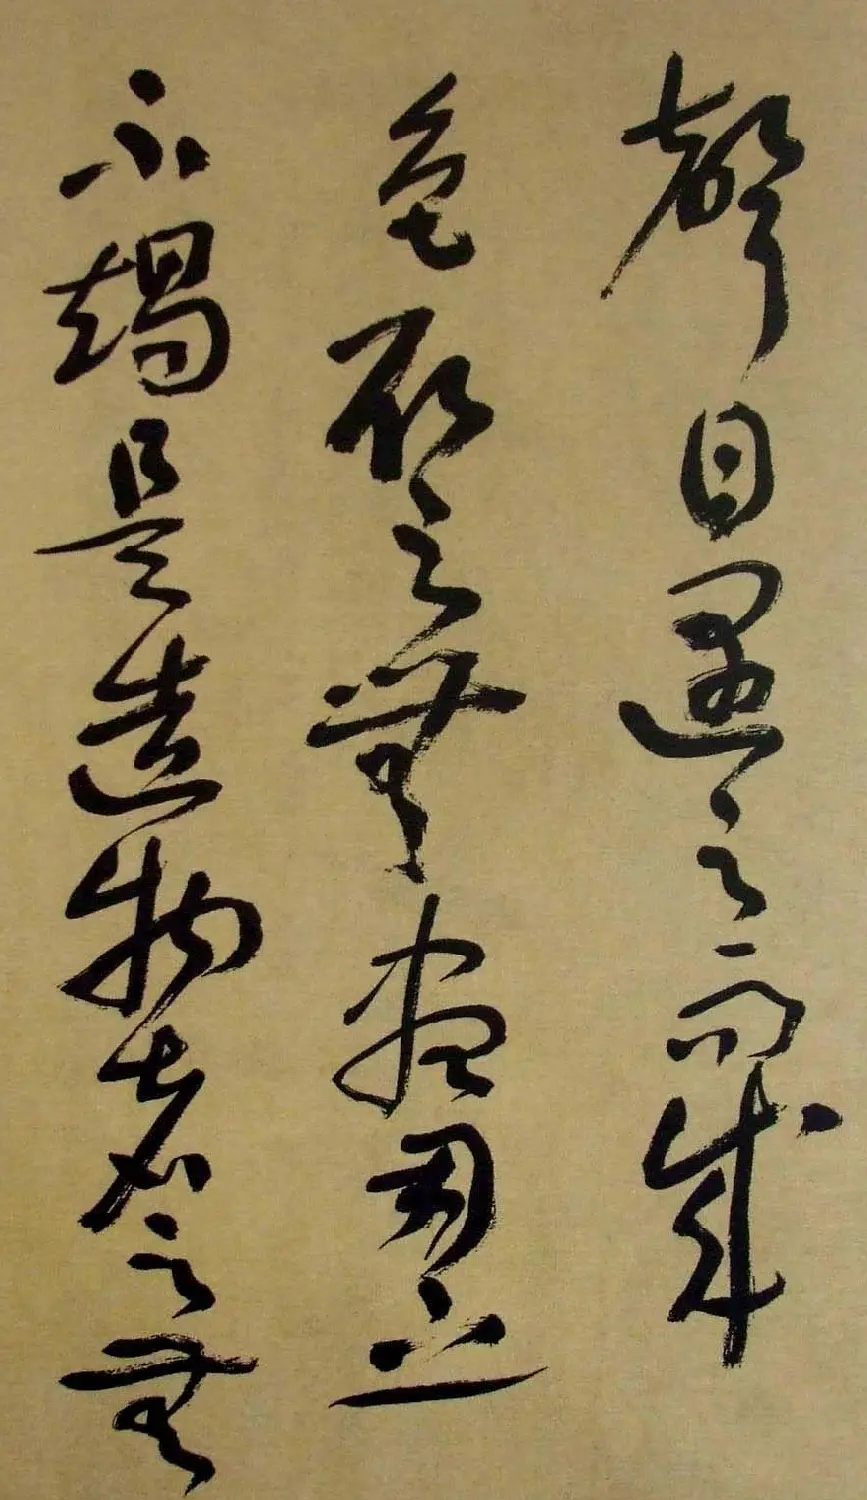 聲目遇之而成
色取之無盡用之
不竭是造物者之無